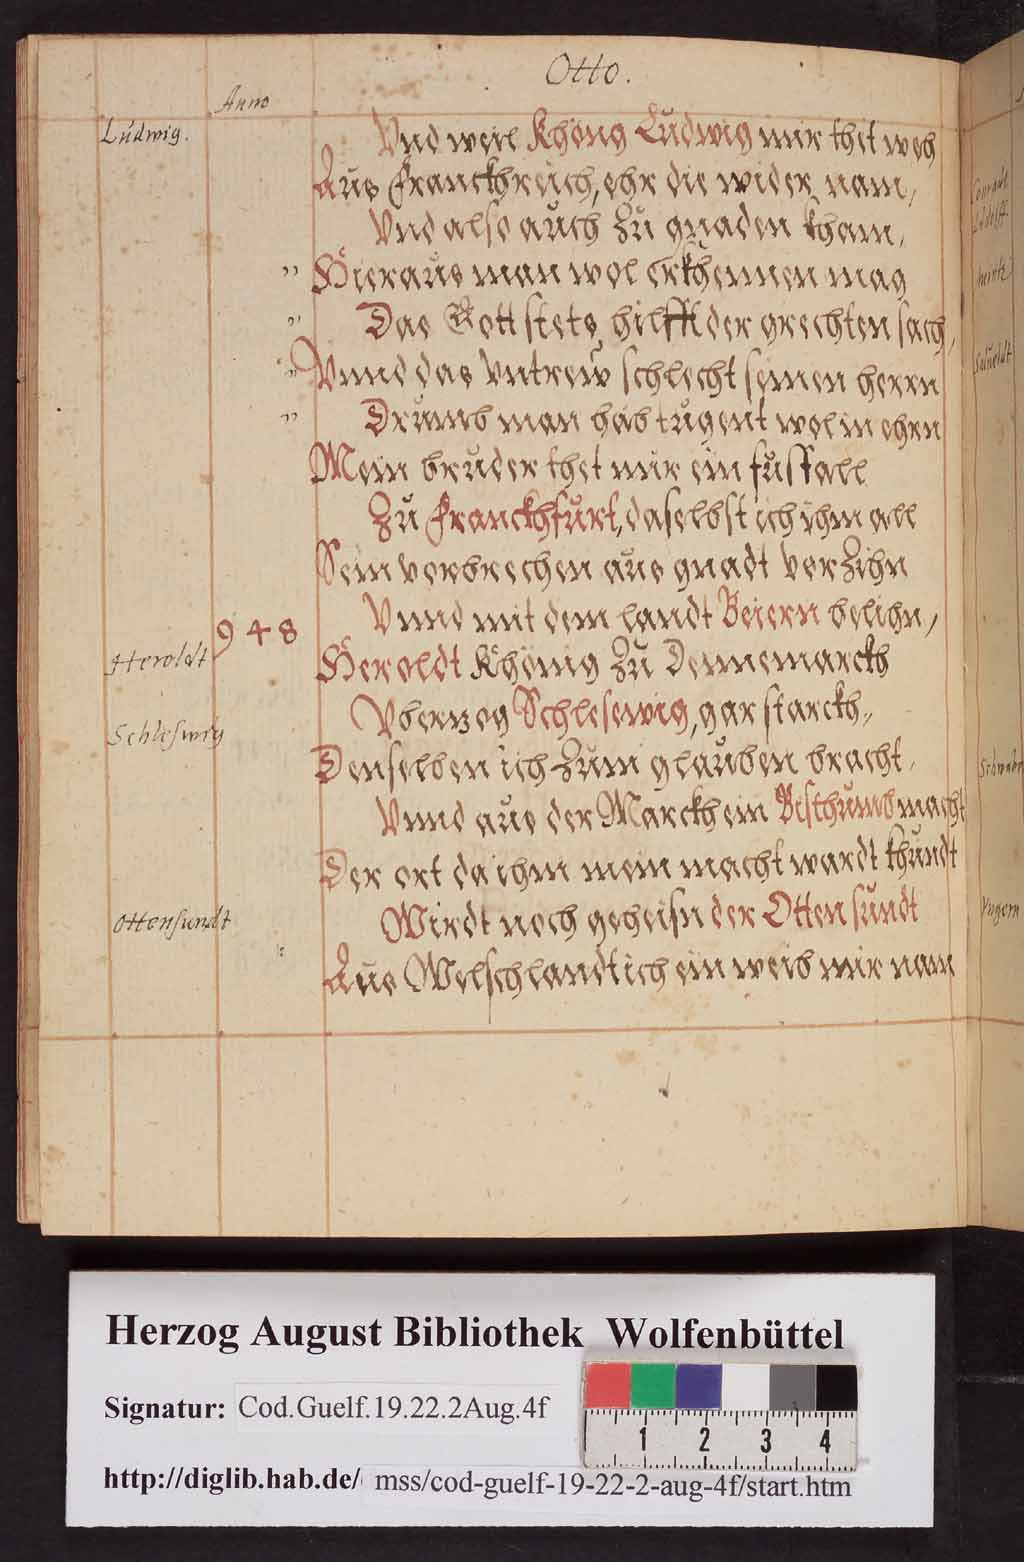 Otto.
Anno
Ludwig.
Vnd weil Khöng Ludwig mir thet weh
Aus Franckhreich, ehr die wider nam,
Vnd also auch Zu gnaden kham,
" Hieraus man wol erkhennen mag
" Das Gott stets hilfft der grechten sach,
" Vnnd das Vntrew schlecht seinen herrn
" Drumb man hab tugent wol in ehrn
Mein bruder thet mir ein fusfall
Zu Franckhfurt, daselbst ich ihm all
Sein verbrechen aus gnadt verZihn
Vnnd mit dem landt Beiern belihn,
948
Heroldt
Heroldt Khönig Zu Dennemarckh
Schleswig
Vberzog Schleswig, gar starckh,
Denselben ich Zum glauben bracht,
Vnnd aus der Marckh ein Bisthumb macht
Der ort da ihm mein macht wardt khundt
Ottensundt
Wirdt noch geheisn der Ottensundt
Aus Welschlandt ich ein weib mir nam
Schwabn
Vngern
Herzog August Bibliothek Wolfenbüttel
Signatur: Cod.Guelf.19.22.2Aug.4f
http://diglib.hab.de/ mss/cod-guelf-19-22-2-aug-4f/start.htm
1 2 3 4